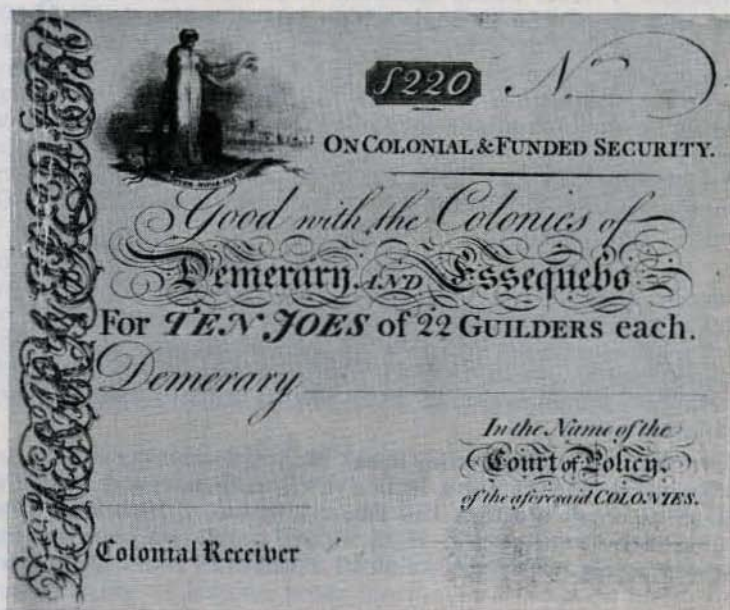 ƒ220 N.
ON COLONIAL & FUNDED SECURITY.
Good with the Colonies of
Demerary AND Essequebo
For TEN JOES of 22 GUILDERS each.
Demerary
In the Name of the
Court of Policy.
of the aforesaid COLONIES.
Colonial Receiver